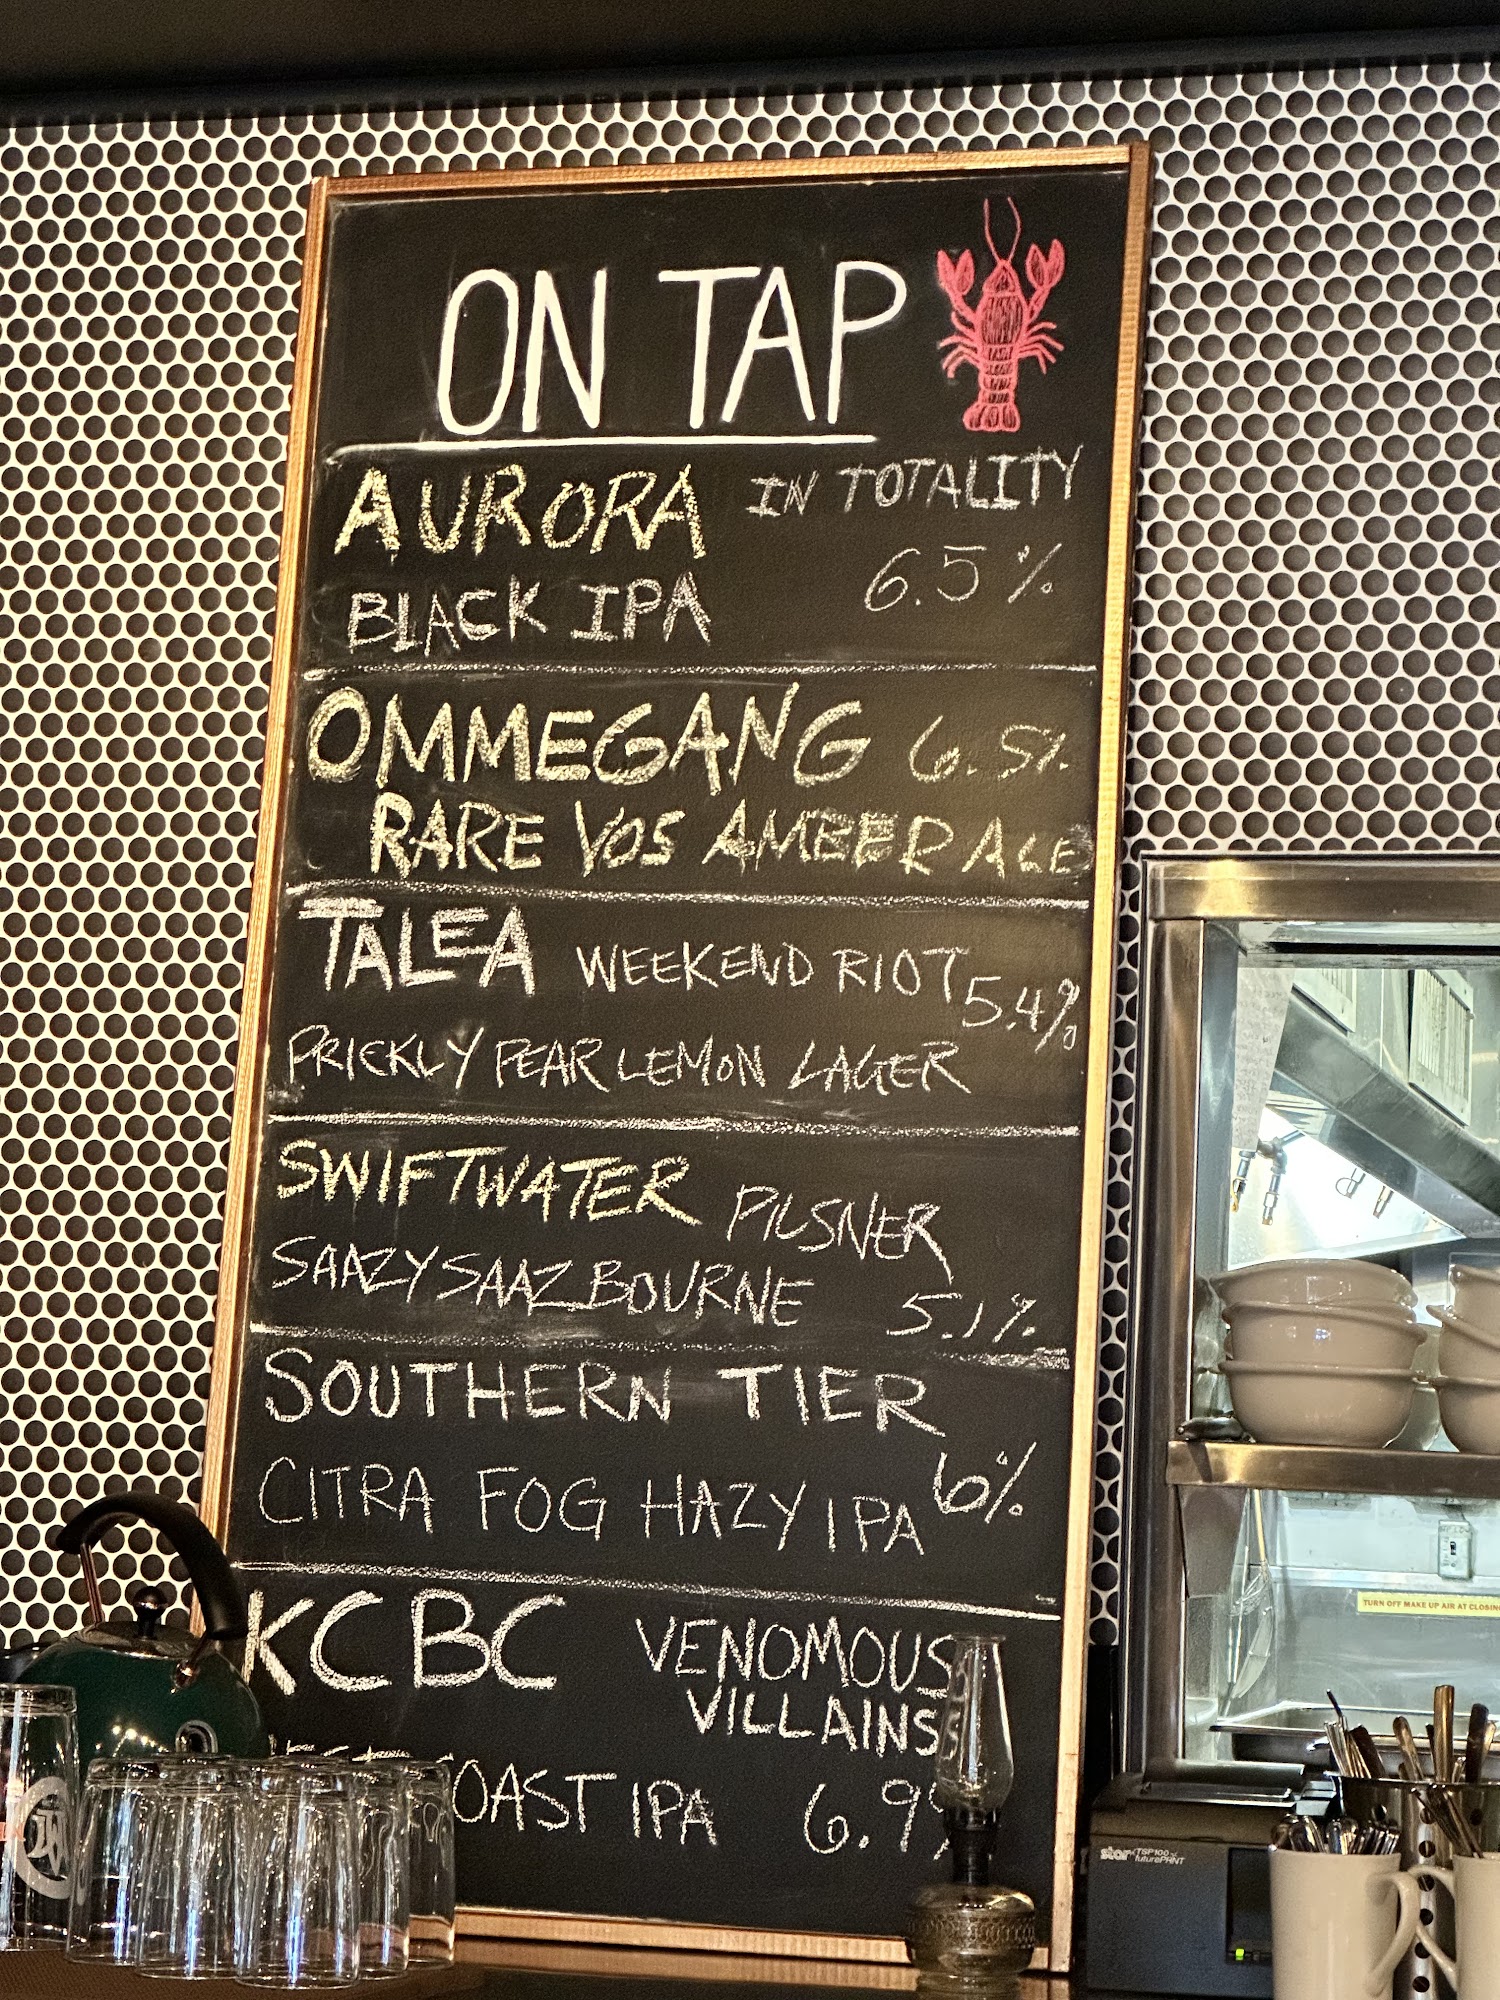 ON TAP
AURORA IN TOTALITY
BLACK IPA 6.5%
OMMEGANG 6.5%
RARE VOS AMBER ALE
TALEA WEEKEND RIOT 5.4%
PRICKLY PEAR LEMON LAGER
SWIFTWATER PILSNER
SAAZY SAAZBOURNE 5.1%
SOUTHERN TIER
CITRA FOG HAZY IPA 6%
KCBC VENOMOUS
VILLAINS
COAST IPA 6.9%
TURN OFF MAKE UP AIR AT CLOSING
star TSP100
futurePRNT